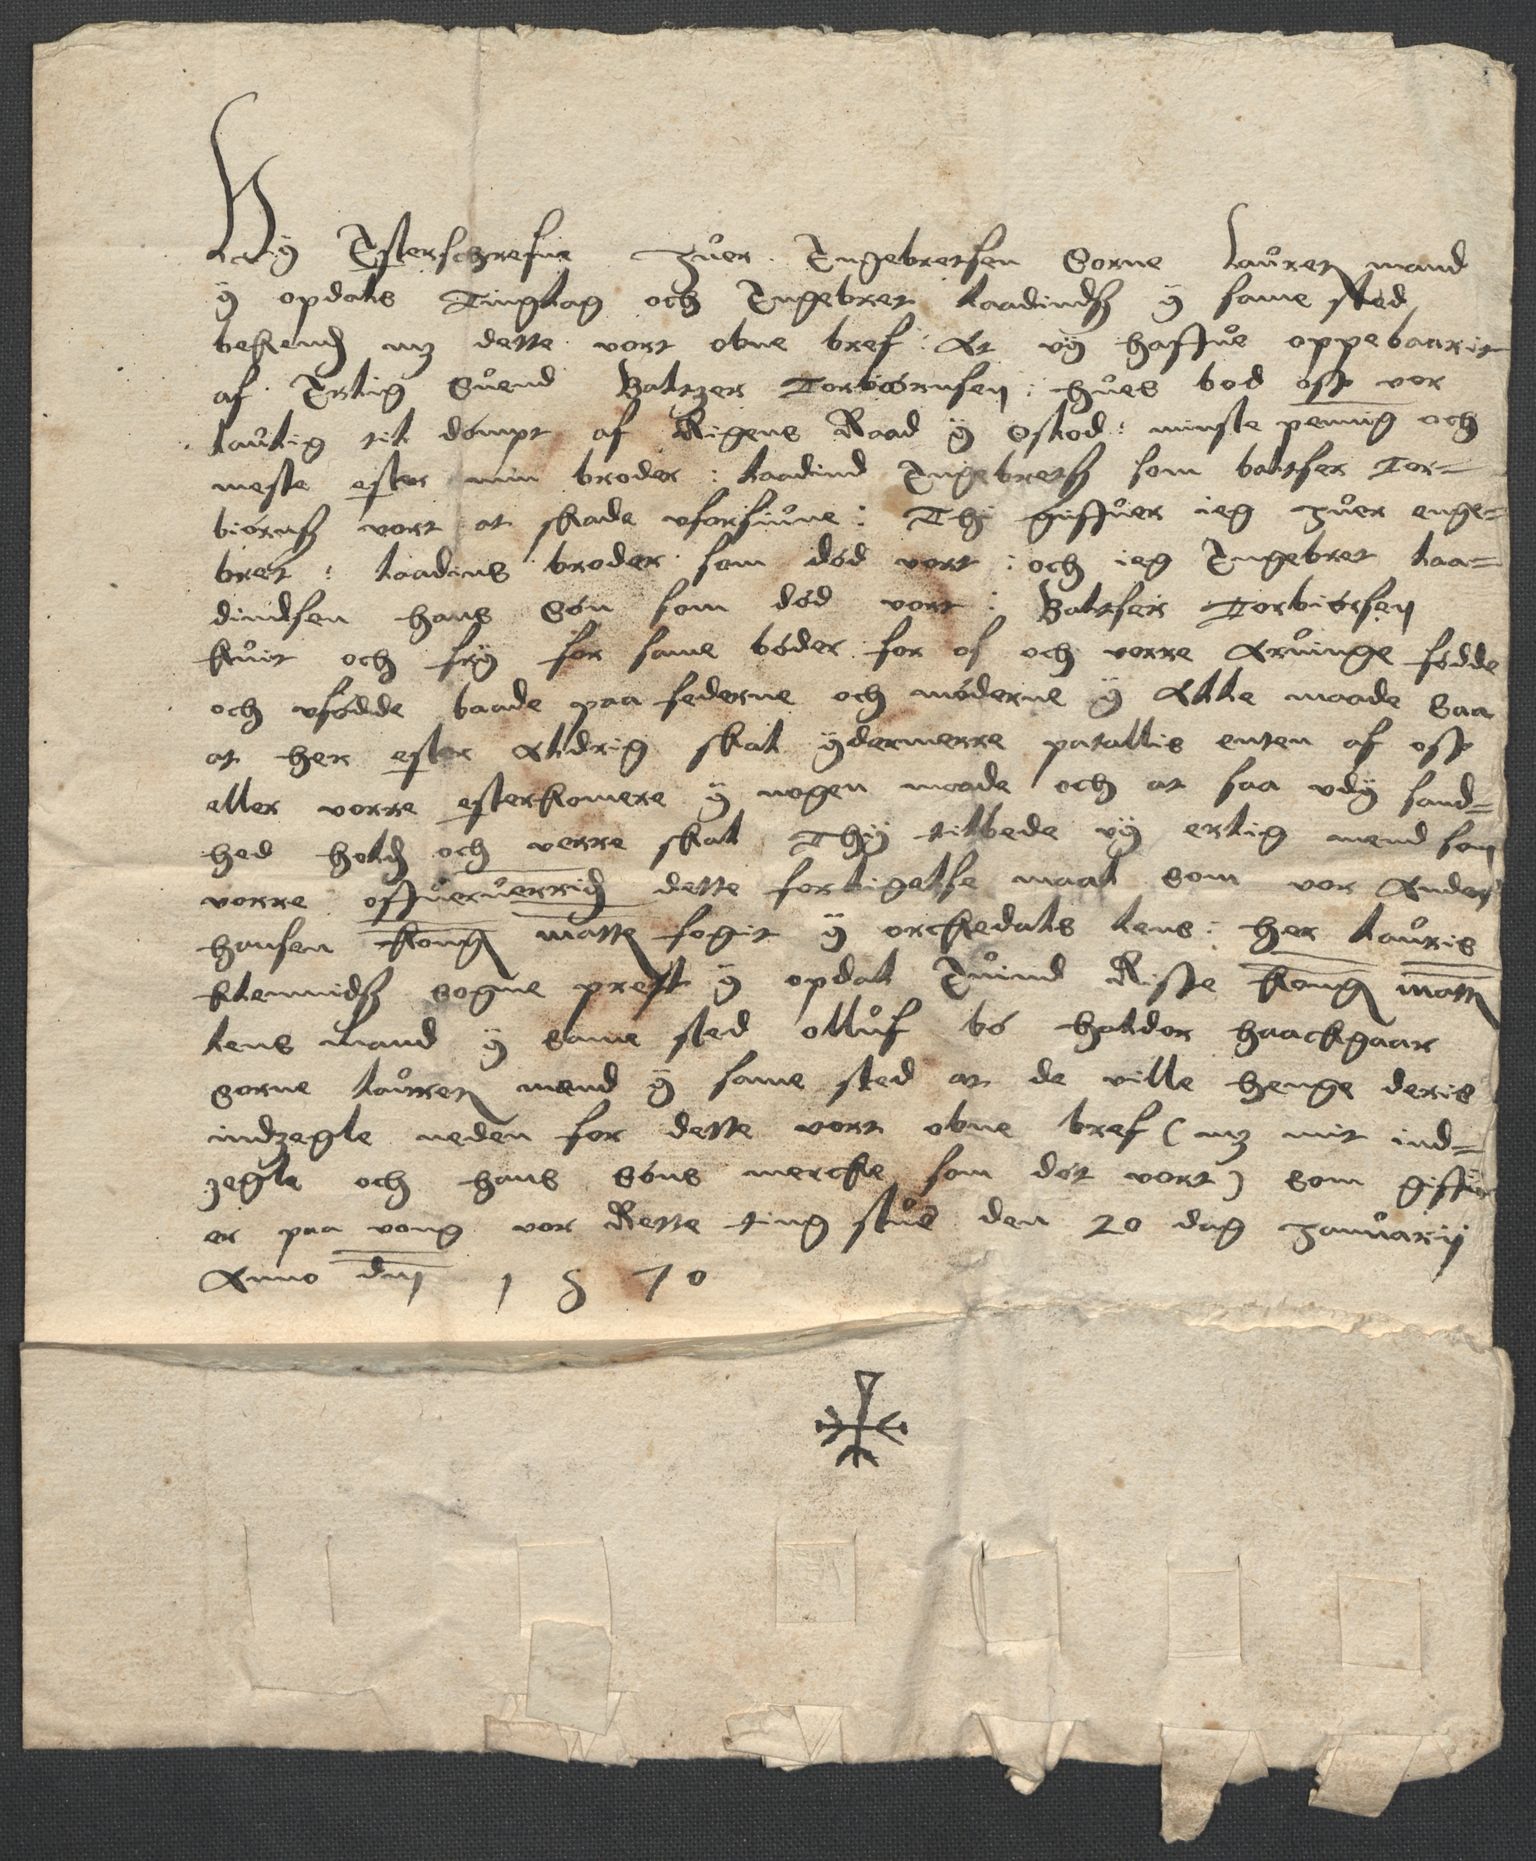 Wij Effterschrefne Juer Engebretsen Sorne Lauret mand
ÿ opdals Tinglag och Engebret laadindß ÿ same sted
bekend mz dette vort obne bref At vÿ haffue oppebaarit
af Erlig Suend Baltzer Torbiørnsen : hues bod oss vor
laulig til dømpt af Rigens Raad ÿ Oslod : minste penning och
meste efter min broder : laadind Engebretß som baltser Tor=
biørnß vort at skade vforsiune : Thj giffuer ieg Juer enge=
bret : laadins broder som død vort : och ieg Engebret laa=
dindsen hans Søn som død vort : Baltser Torbiørsen
kuit och frÿ for same bøder for os och vorre Aruinge fødde
och vfødde baade paa federne och møderne ÿ Alle maade Saa
at her efter Aldrig skal ÿdermerre patallis enten af oss
eller vorre efterkomere ÿ nogen maade och at saa vdÿ sand=
hed hold och verre skal Thÿ tilbede vÿ erlig mend som
vorre offueruerrid dette forligelse maal Som vor Anders
hansen kong matt fogit ÿ orckedals lens : her lauris
klemidß sogne prest ÿ opdal Euind Riße kong matt
lens mand ÿ same sted olluf bø haldor haackgaar
sorne laurret mend ÿ same sted at de ville henge deris
indzegle neden for dette vort obne bref ( mz mit ind=
zegle och hans søns mercke som døt vort ) Som gifuit
er paa vong vor Rette ting stue den 20 dag Januarij
Anno dnj 1570